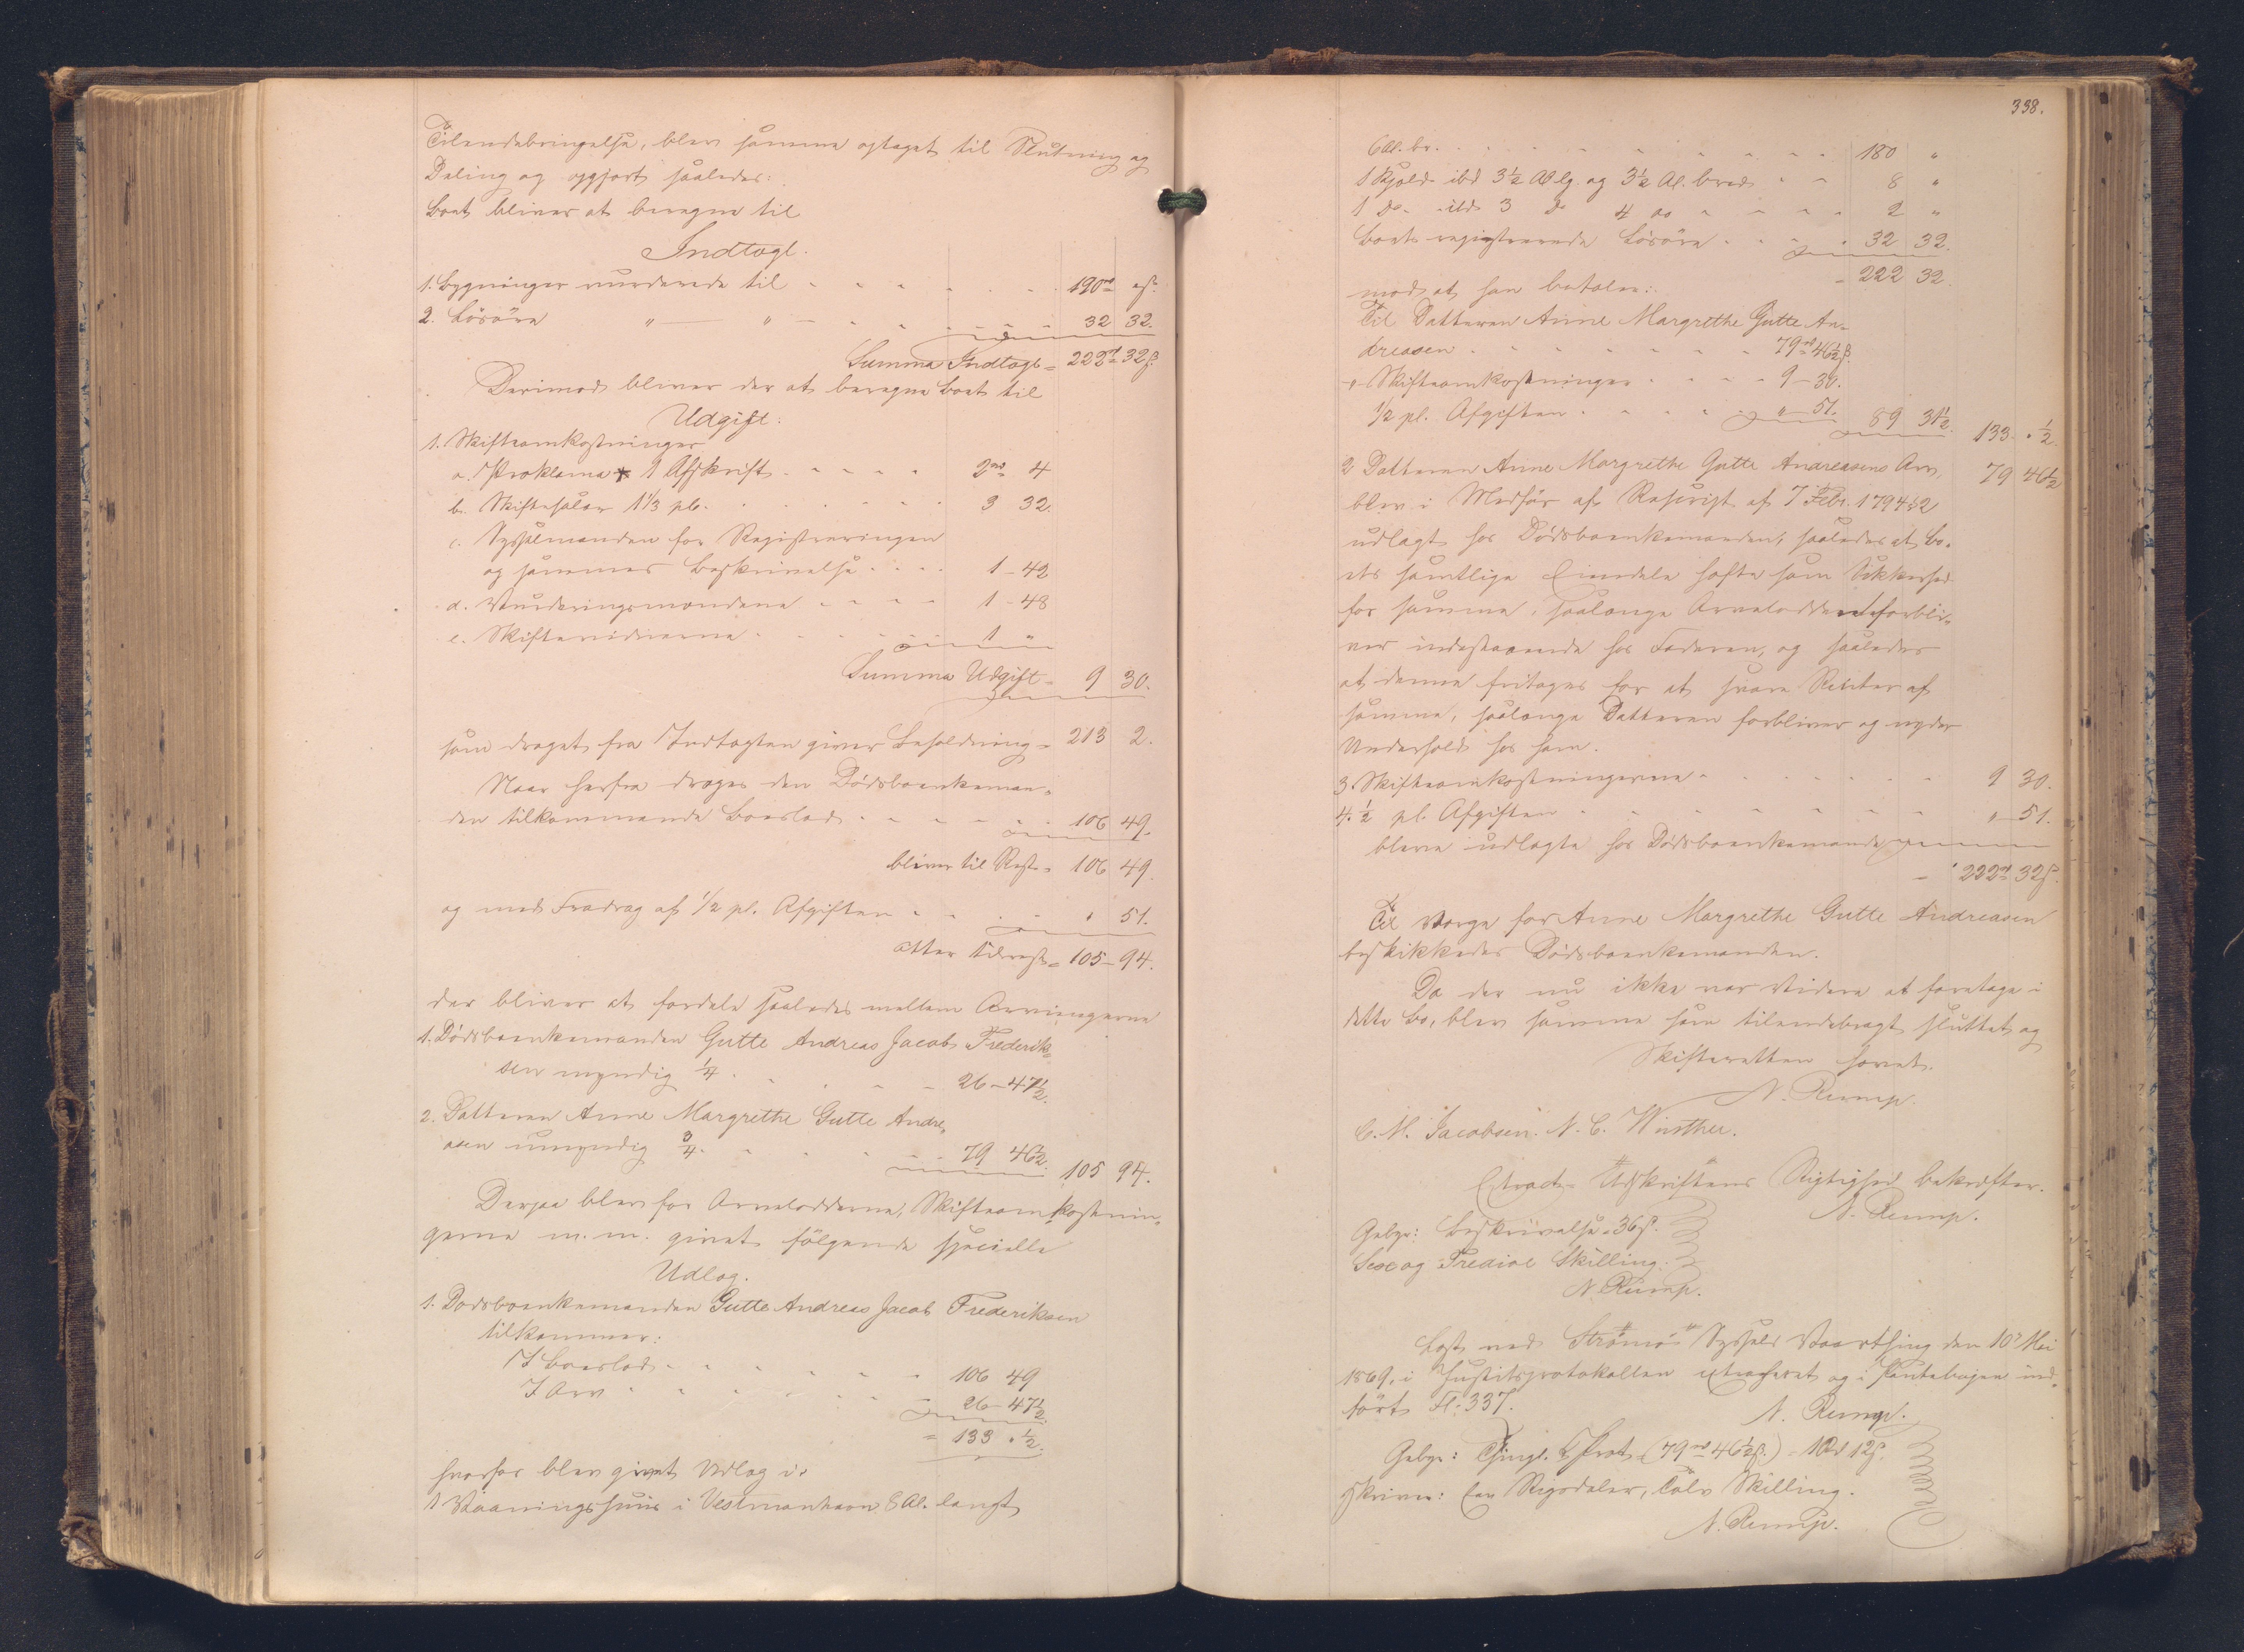 Tilendebringelse, blev samme optaget til Slutning og
Deling og opgjort saaledes:
Boet bliver at beregne til
Indtægt.
1. Bygninger vurderede til - - - - - - 190 rd " ß.
2. Løsøre " — " - - - - - 32 32.
Summa Indtægt = 222 rd 32 ß.
Derimod bliver der at beregne Boet til
Udgift:
1. Skifteomkostninger
a. Proklama * 1 Afskrift - - - - 2 rd 4
b. Skiftesalær 1 1/3 pC. - - - - 3 32.
c. Sysselmanden for Registreringen
og sammes Beskrivelse - - - 1 - 42
d. Vurderingsmændene - - - - 1 - 48
e. Skiftevidnerne - - - - - 1 "
Summa Udgift = 9 30.
som draget fra Indtægten giver Beholdning = 213 2.
Naar herfra drages den Dødsboenkeman-
den tilkommende Boeslod - - - - - 106 49.
bliver til Rest = 106 49.
og med Fradrag af 1/2 pC. Afgiften - - - - " 51.
atter tilrest = 105 - 94.
der bliver at fordele saaledes mellem Arvingerne
1. Dødsboenkemanden Gutte Andreas Jacob Frederik-
sen myndig 1/4 - - - - - 26 - 47 1/2.
2. Datteren Anne Margrethe Gutte Andre-
asen umyndig 3/4 - - - - 79 46 1/2. 105 94.
Derpaa blev for Arvelodderne, Skifteomkostnin-
gerne m. m. givet følgende specielle
Udlæg.
1. Dødsboenkemanden Gutte Andreas Jacob Frederiksen
tilkommer:
I Boeslod - - - - - - 106 49
I Arv - - - - - - 26 - 47 1/2.
= 133 " 1/2.
hvorfor blev givet Udlæg i:
1 Vaaningshuus i Vestmanhavn 8 Al. langt
338.
6 Al. br. - - - - - - - - - 180 "
1 Hjeld ibd 3 1/2 Al lg. og 3 1/2 Al. bred - - 8 "
1 Do - ibd 3 Do 4 do - - - - 2 "
Boets registrerede Løsøre - - - - 32 32.
= 222 32.
mod at han betaler:
Til Datteren Anne Margrethe Gutte An-
dreasen - - - - - - - 79 rd 46 1/2 ß.
" Skifteomkostninger - - - - 9 - 30.
1/2 pC. Afgiften - - - - - " - 51. 89 31 1/2. 133 " 1/2.
2 Datteren Anne Margrethe Gutte Andreasens Arv, 79 46 1/2
blev i Medfør af Rescript af 7 Febr. 1794 § 2
udlagt hos Dødsboenkemanden, saaledes at Bo-
ets samtlige Eiendele hæfte som Sikkerhed
for samme, saalænge Arvelodden forbli-
ver indestaaende hos Faderen, og saaledes
at denne fritages for at svare Renter af
samme, saalænge Datteren forbliver og nyder
Underhold hos ham.
3. Skifteomkostningerne - - - - - - 9 30.
4. 1/2 pC. Afgiften - - - - - - - " - 51.
bleve udlagte hos Dødsboenkemanden
= 222 rd 32 ß.
Til Værge for Anne Margrethe Gutte Andreasen
beskikkedes Dødsboenkemanden.
Da der nu ikke var videre at foretage i
dette Bo, blev samme som tilendebragt sluttet og
Skifteretten hævet.
N. Rump.
C. M. Jacobsen. N. C. Winther.
Extract-Udskriftens Rigtighed bekræfter.
N. Rump.
Gebyr: Beskrivelse = 36 ß.
Sex og Tredive Skilling.
N. Rump.
Læst ved Strømø Syssels Vaarthing den 10 Mai
1869, i Justitsprotokollen extraheret og i Pantebogen ind-
ført Fl. 337.
N. Rump.
Gebyr: Thingl. & Prot. (79 rd 46 1/2 ß.) = 1 Rd 12 ß.
skriver: Een Rigsdaler, tolv Skilling.
N. Rump.